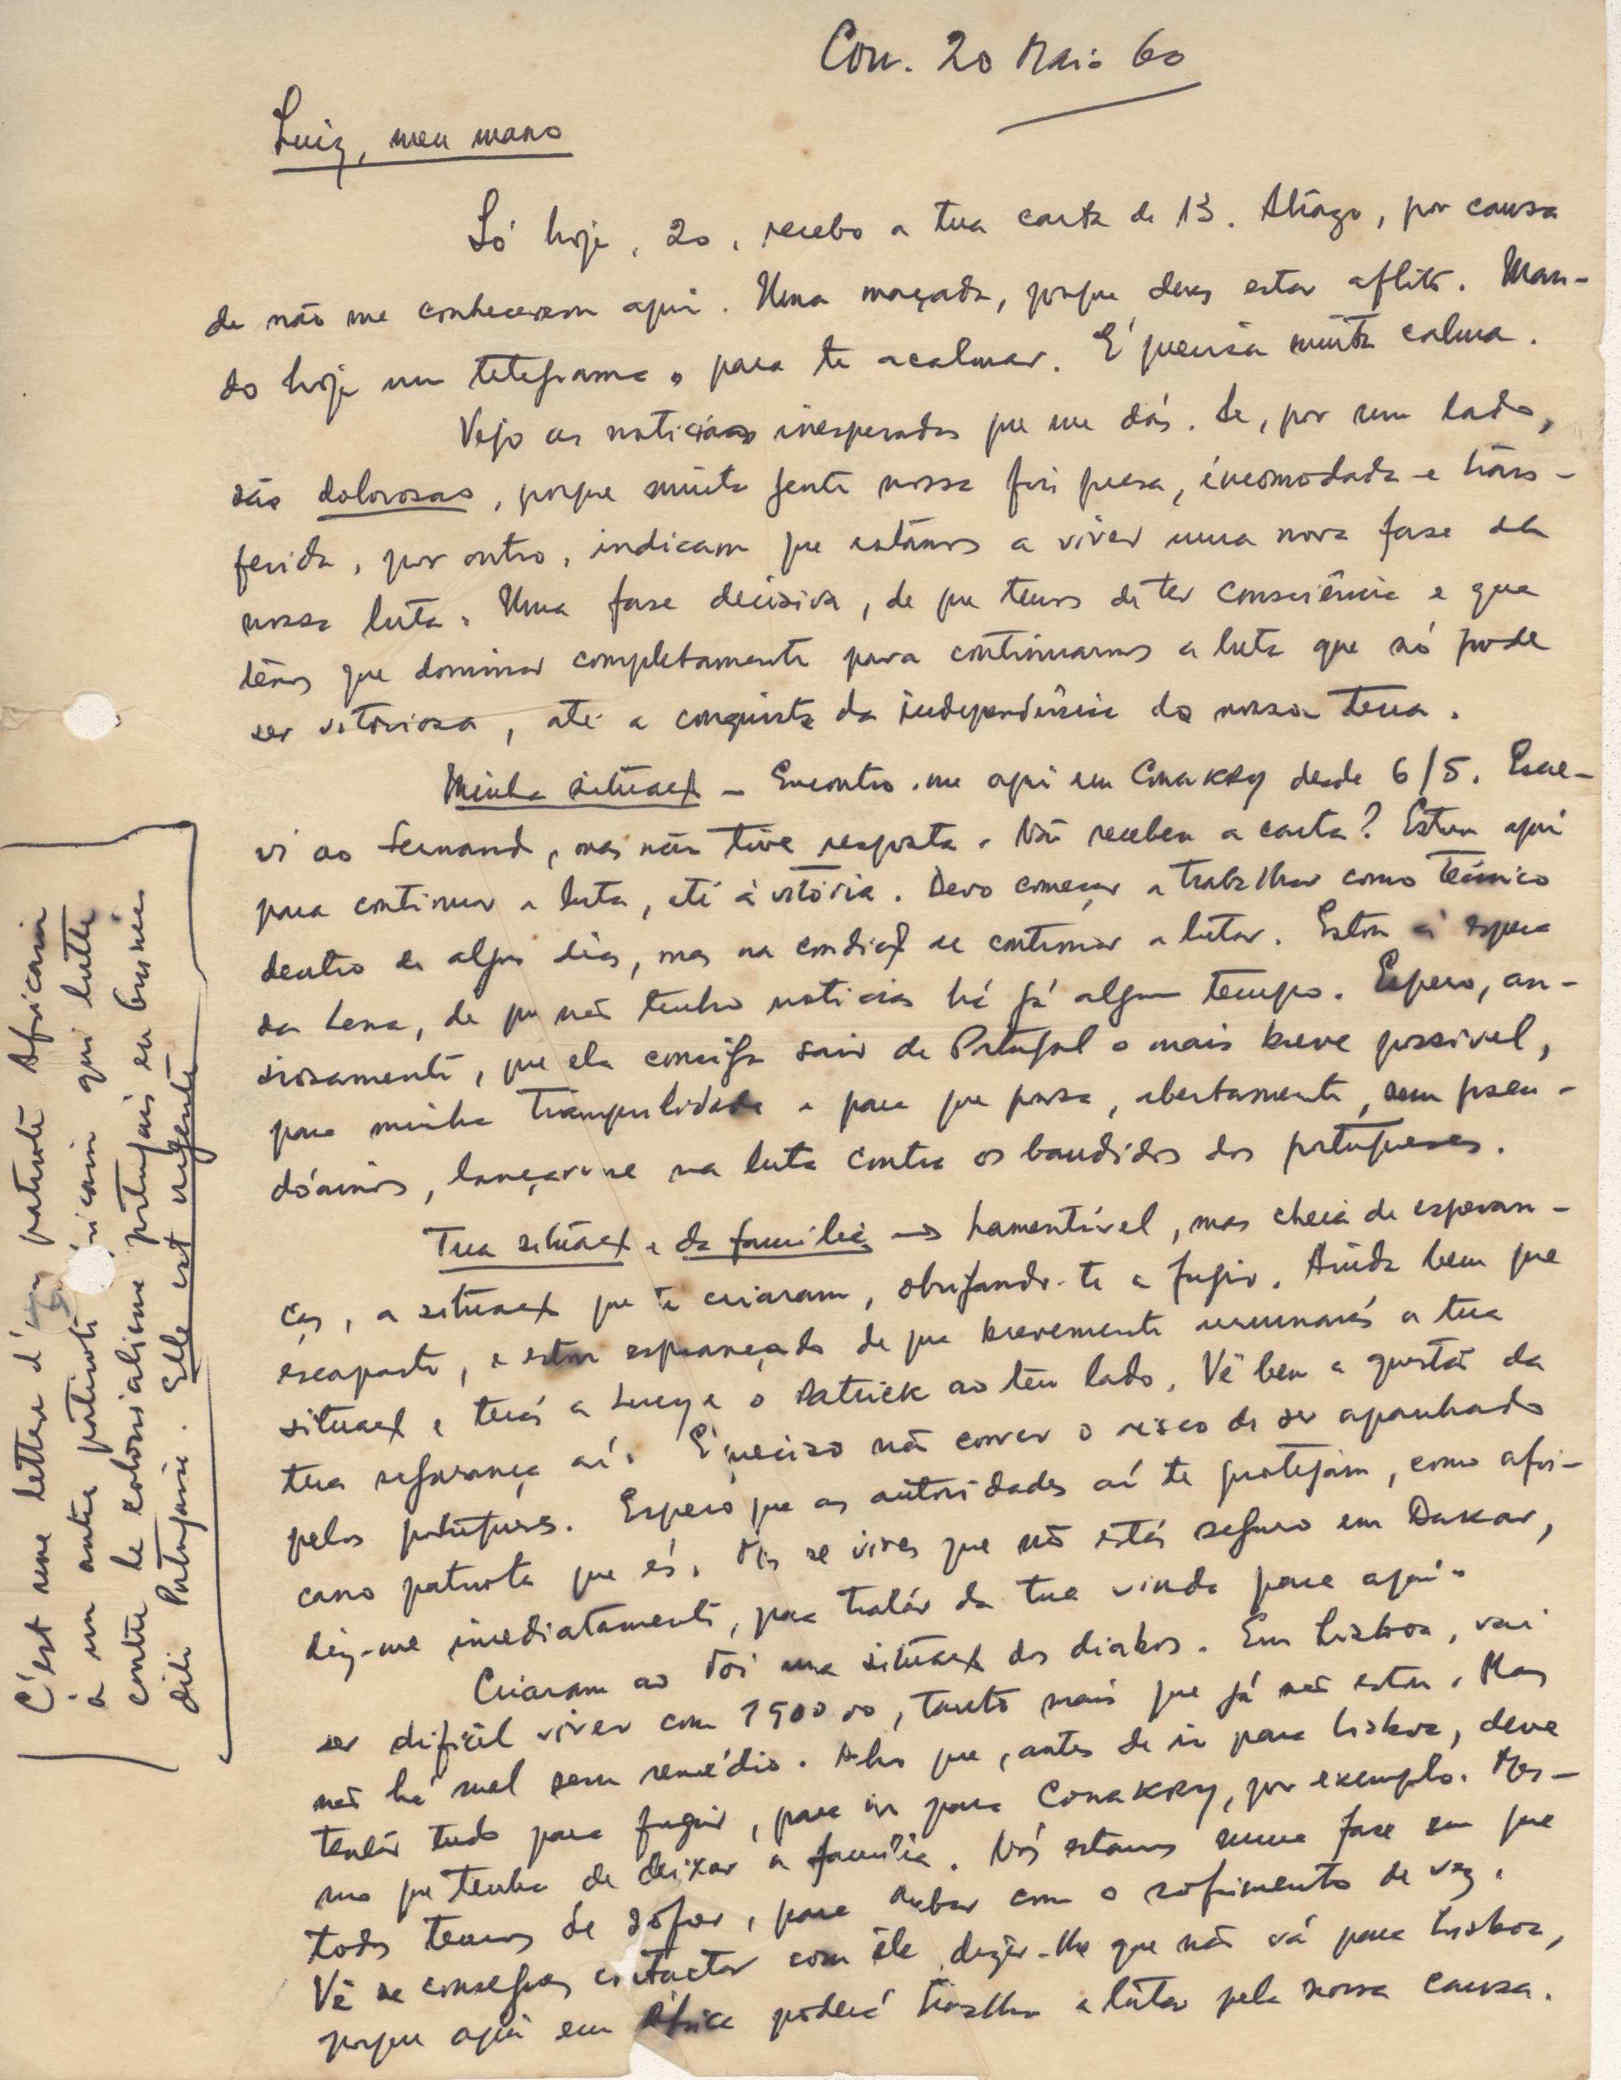 Con. 20 Maio 60
Luiz, meu mano
Só hoje, 20, recebo a tua carta de 13. Atrazo, por causa
de não me conhecerem aqui. Uma maçada, porque deves estar aflito. Man-
do hoje um telegrama, para te acalmar. É precisa muita calma.
Vejo as noticias inesperadas que me dás. Se, por um lado,
são dolorosas, porque muita gente nossa foi presa, incomodada e trans-
ferida, por outro, indicam que estamos a viver uma nova fase da
nossa luta. Uma fase decisiva, de que temos de ter consciência e que
temos que dominar completamente para continuarmos a luta que só pode
ser vitoriosa, até a conquista da independência da nossa terra.
Minha situaç. - Encontro-me aqui em Conakry desde 6/5. Escre-
vi ao Fernand, mas não tive resposta. Não recebeu a carta? Estou aqui
para continuar a luta, até à vitória. Devo começar a trabalhar como técnico
dentro de alguns dias, mas na condiç. de continuar a lutar. Estou à espera
da Lena, de que não tenho noticias há já algum tempo. Espero, an-
siosamente, que ela consiga sair de Portugal o mais breve possivel,
para minha tranquilidade e para que possa, abertamente, sem pseu-
dónimos, lançar-me na luta contra os bandidos dos portugueses.
Tua situaç. e da familia → Lamentável, mas cheia de esperan-
ças, a situaç. que te criaram, obrigando-te a fugir. Ainda bem que
escapaste, e estou esperançado de que brevemente arrumarás a tua
situaç. e terás a Lucy e o Patrick ao teu lado. Vê bem a questão da
tua segurança aí. É preciso não correr o risco de ser apanhado
pelos portugueses. Espero que as autoridades aí te protejam, como afri-
cano patriota que és. Mas se vires que não estás seguro em Dakar,
diz-me imediatamente, para tratar da tua vinda para aqui.
Criaram ao Toi uma situaç. dos diabos. Em Lisboa, vai
ser dificil viver com 1900 00, tanto mais que já não estou. Mas
não há mal sem remédio. Acho que, antes de ir para Lisboa, deve
tentar tudo para fugir, para ir para Conakry, por exemplo. Mes-
mo que tenha de deixar a familia. Nós estamos numa fase em que
todos temos de sofrer, para acabar com o sofrimento de vez.
Vê se consegues contactar com êle, dizer-lhe que não vá para Lisboa,
porque aqui em África poderá trabalhar e lutar pela nossa causa.
C'est une lettre d'un patriote Africain
à un autre patriote africain qui lutte
contre le colonialisme portugais en Guinée
dite Portugaise. Elle est urgente